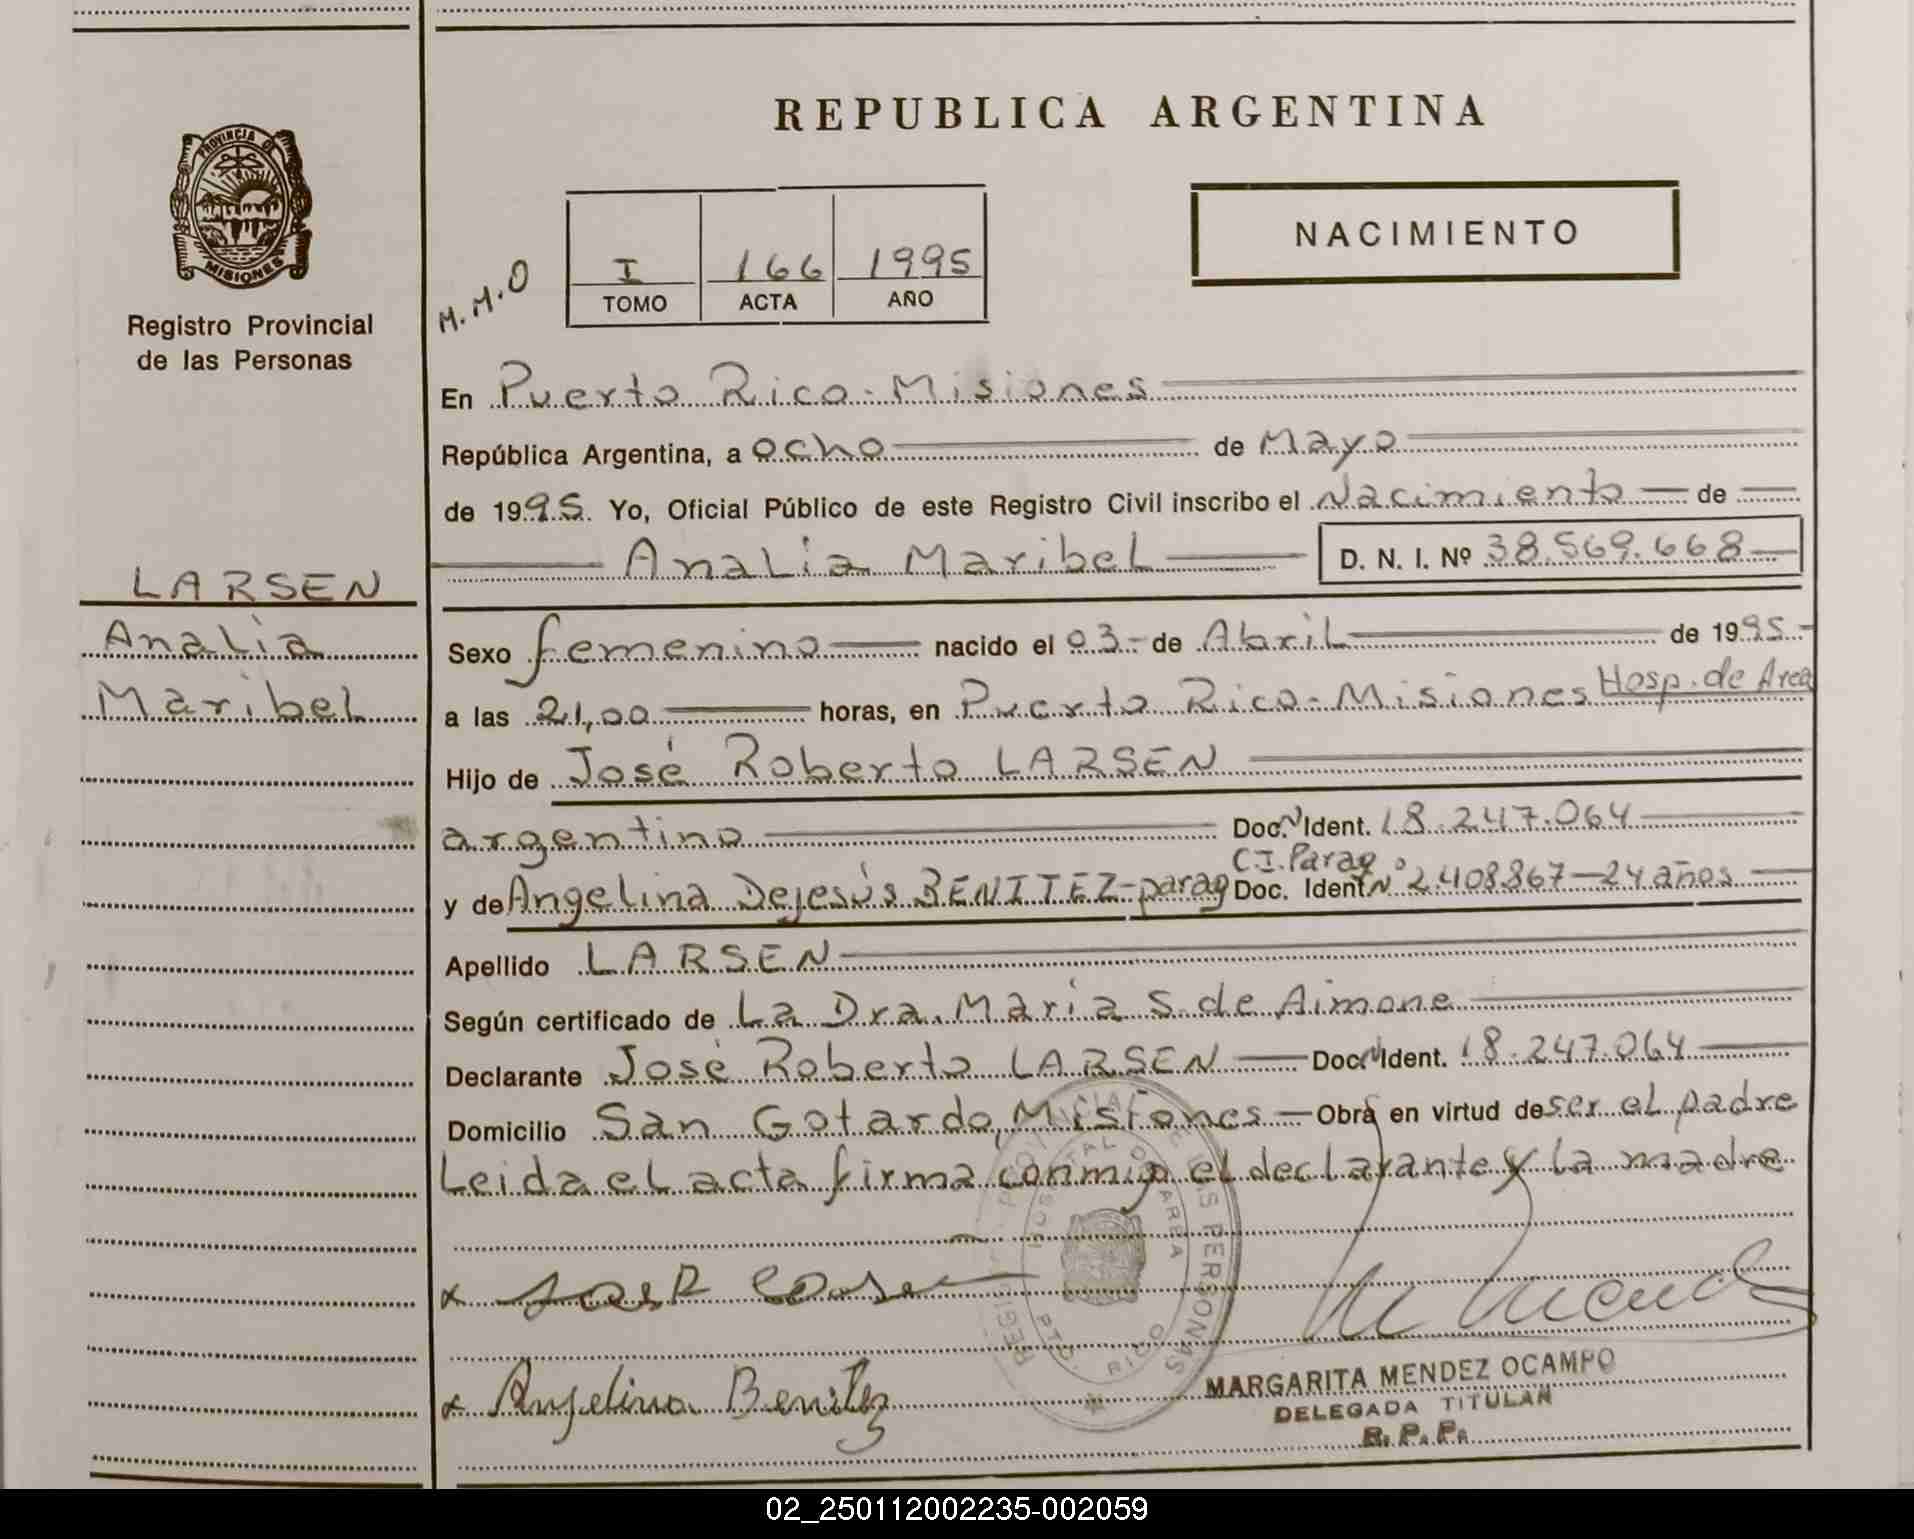 REPUBLICA ARGENTINA
PROVINCIA DE
MISIONES
Registro Provincial
de las Personas
NACIMIENTO
M.M.O
I 166 1995
TOMO ACTA AÑO
En Puerto Rico - Misiones
República Argentina, a ocho de Mayo
de 1995. Yo, Oficial Público de este Registro Civil inscribo el Nacimiento de
Analia Maribel D. N. I. Nº 38.569.668
LARSEN
Analia
Maribel
Sexo femenino nacido el 03 - de Abril de 1995.
a las 21,00 horas, en Puerto Rico - Misiones Hosp. de Area
Hijo de José Roberto LARSEN
argentino Doc. N Ident. 18.247.064
C.I. Parag
y de Angelina Dejesús BENITEZ - parag Doc. Ident Nº 2.408867 - 24 años
Apellido LARSEN
Según certificado de La Dra. Maria S. de Aimone
Declarante José Roberto LARSEN Doc. N Ident. 18.247.064
Domicilio San Gotardo, Misiones - Obra en virtud de ser el padre
Leida el acta firma conmigo el declarante y la madre
HOSPITAL DE AREA
PTO. RICO
x José
x Angelina Benitez
MARGARITA MENDEZ OCAMPO
DELEGADA TITULAR
R. P. P.
02_250112002235-002059